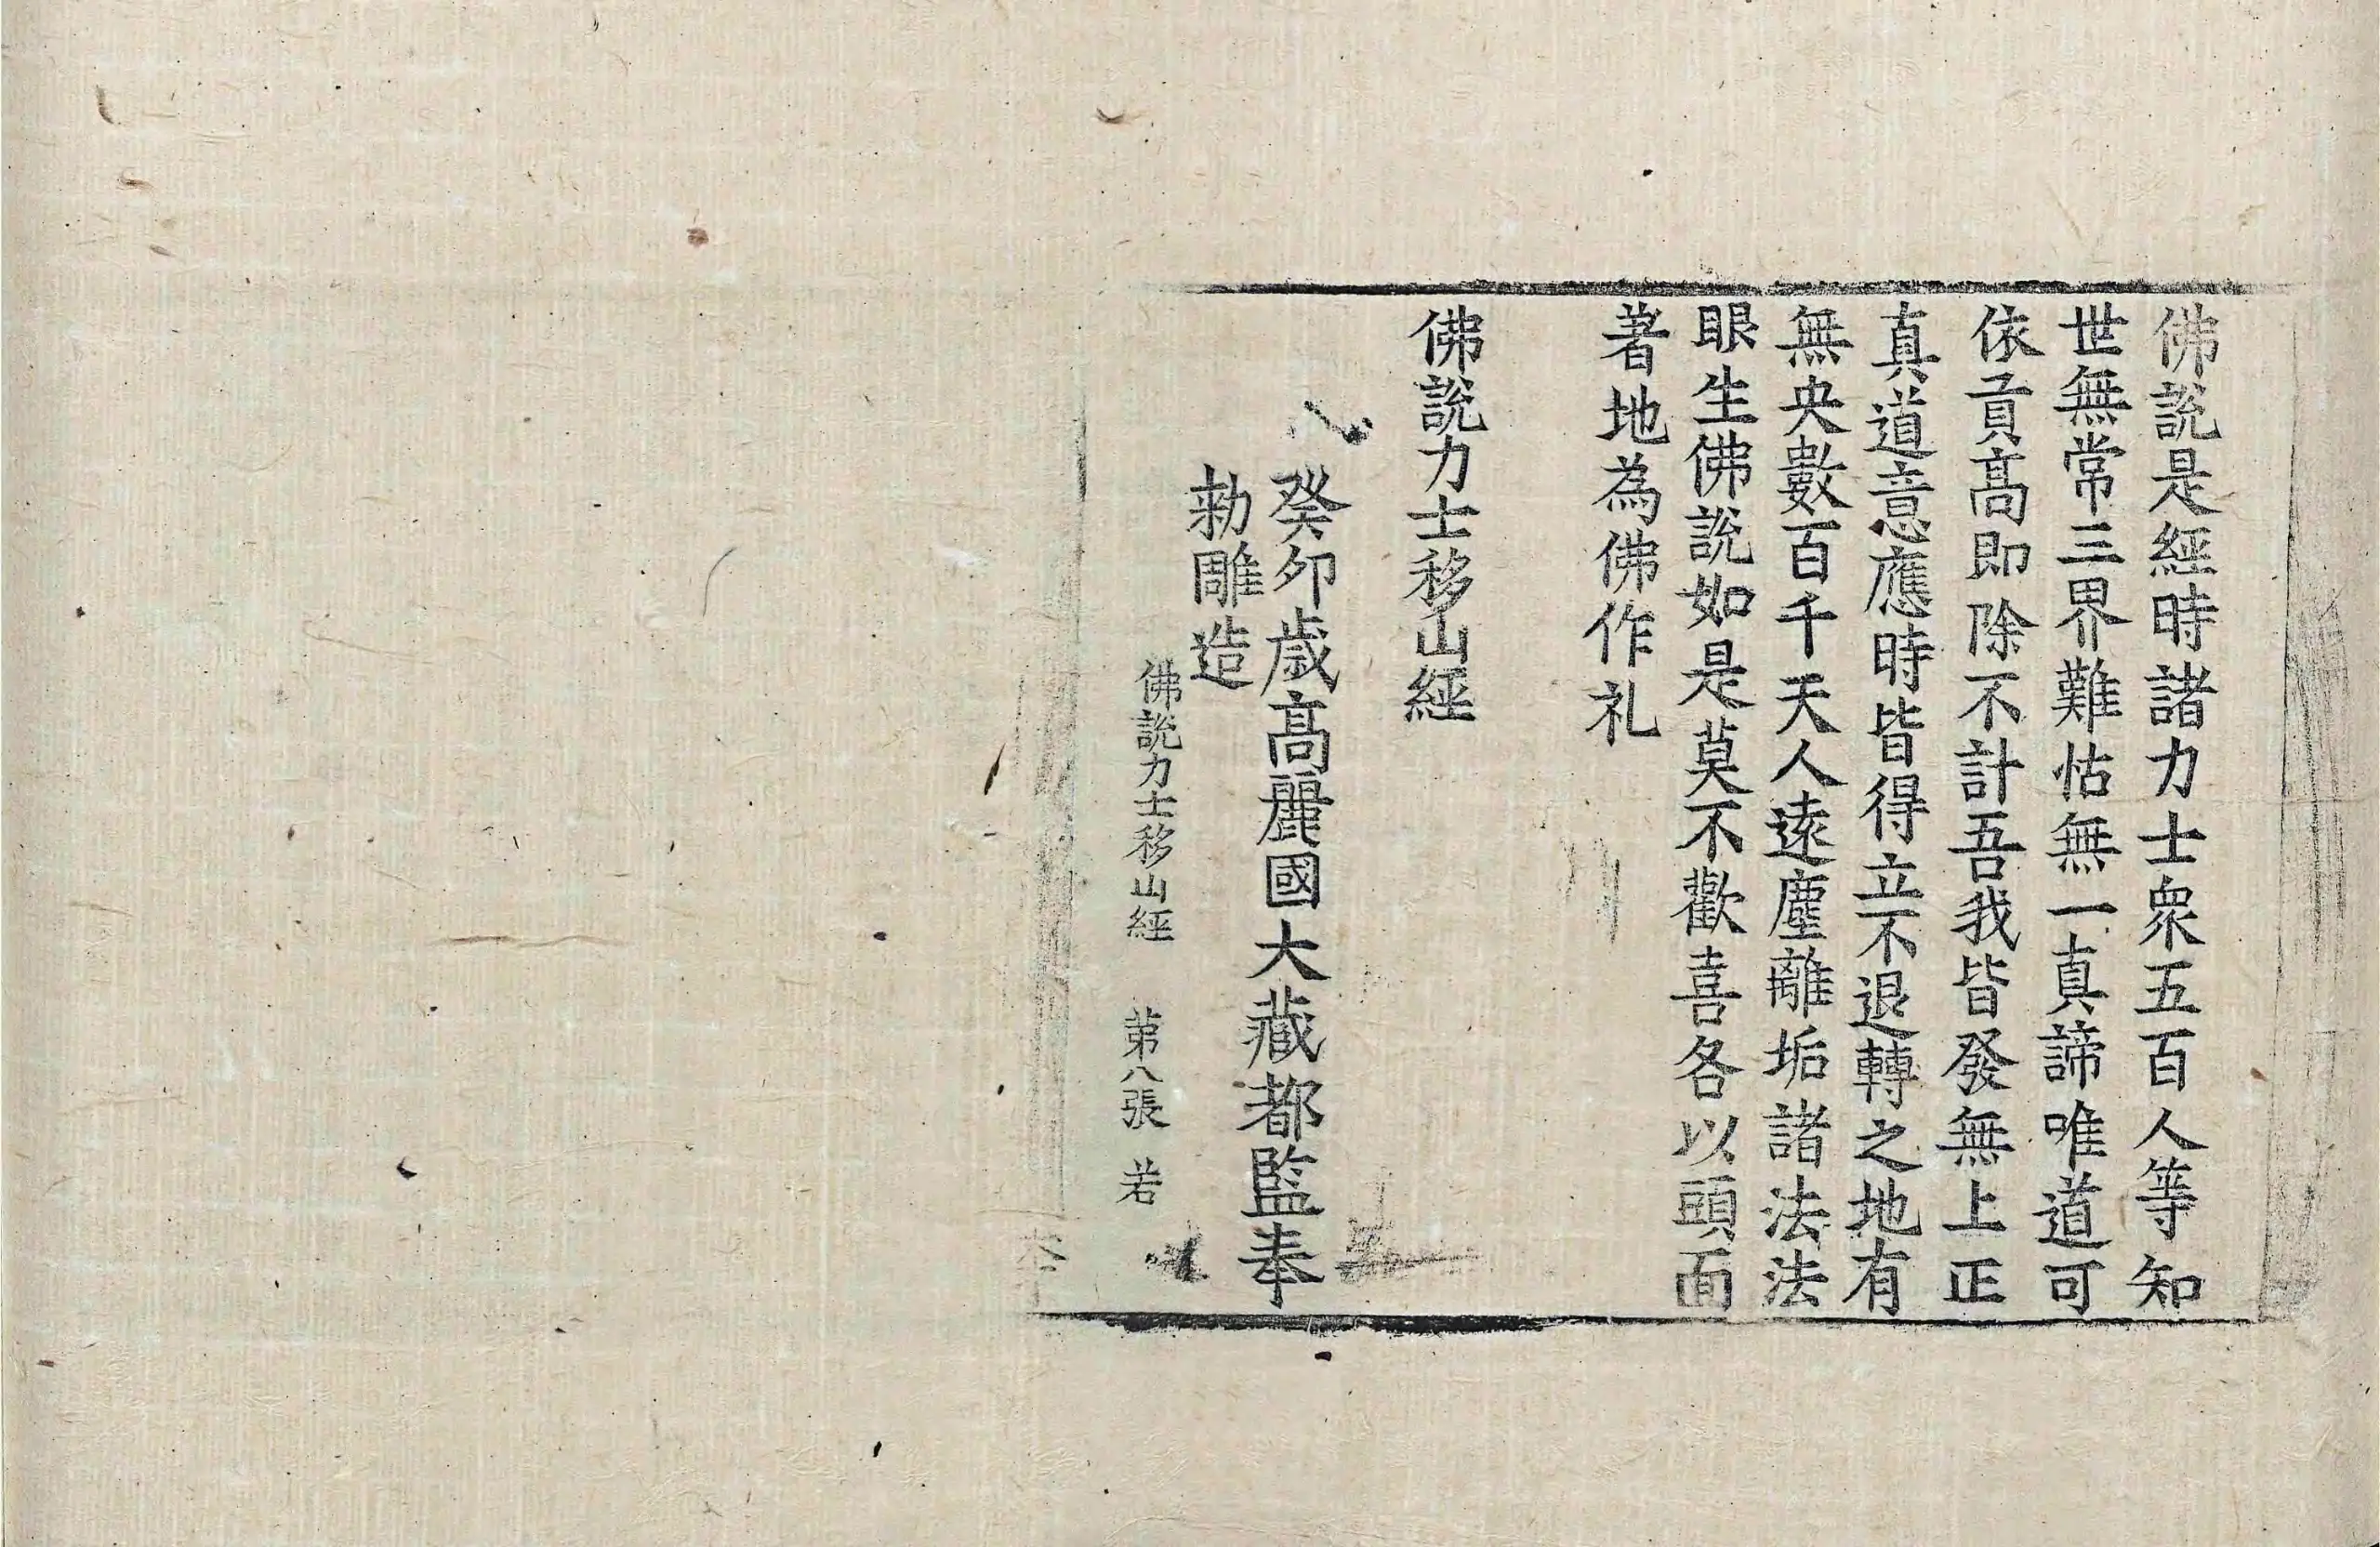 佛說是經時諸力士衆五百人等知
世無常三界難怙無一真諦唯道可
依貢高即除不計吾我皆發無上正
真道意應時皆得立不退轉之地有
無央數百千天人遠塵離垢諸法法
眼生佛說如是莫不歡喜各以頭面
著地為佛作礼
佛說力士移山經
癸卯歲高麗國大藏都監奉
勑雕造
佛說力士移山經 第八張 若